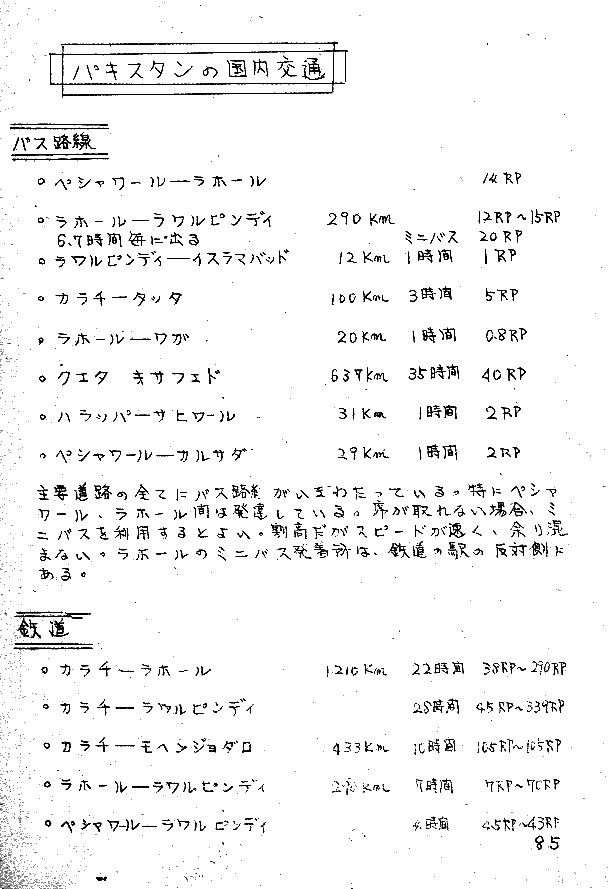 パキスタンの国内交通
バス路線
○ ペシャワール―ラホール 14RP
○ ラホール―ラワルピンディ 290Km 12RP~15RP
6.7時間毎に出る ミニバス 20RP
○ ラワルピンディ―イスラマバッド 12Km 1時間 1RP
○ カラチ―タッタ 100Km 3時間 5RP
○ ラホール―ワガ 20Km 1時間 0.8RP
○ クエタ キサフェド 637Km 35時間 40RP
○ ハラッパ―サヒワール 31Km 1時間 2RP
○ ペシャワール―カルサダ 29Km 1時間 2RP
主要道路の全てにバス路線がいきわたっている。特にペシャ
ワール、ラホール間は発達している。席が取れない場合、ミ
ニバスを利用するとよい。割高だがスピードが速く、余り混
まない。ラホールのミニバス発着所は、鉄道の駅の反対側に
ある。
鉄道
○ カラチ―ラホール 1.210Km 22時間 38RP~290RP
○ カラチ―ラワルピンディ 28時間 45RP~339RP
○ カラチ―モヘンジョダロ 433Km 10時間
○ ラホール―ラワルピンディ 7時間 7RP~70RP
○ ペシャワール―ラワルピンディ 4時間 4.5RP~43RP
85